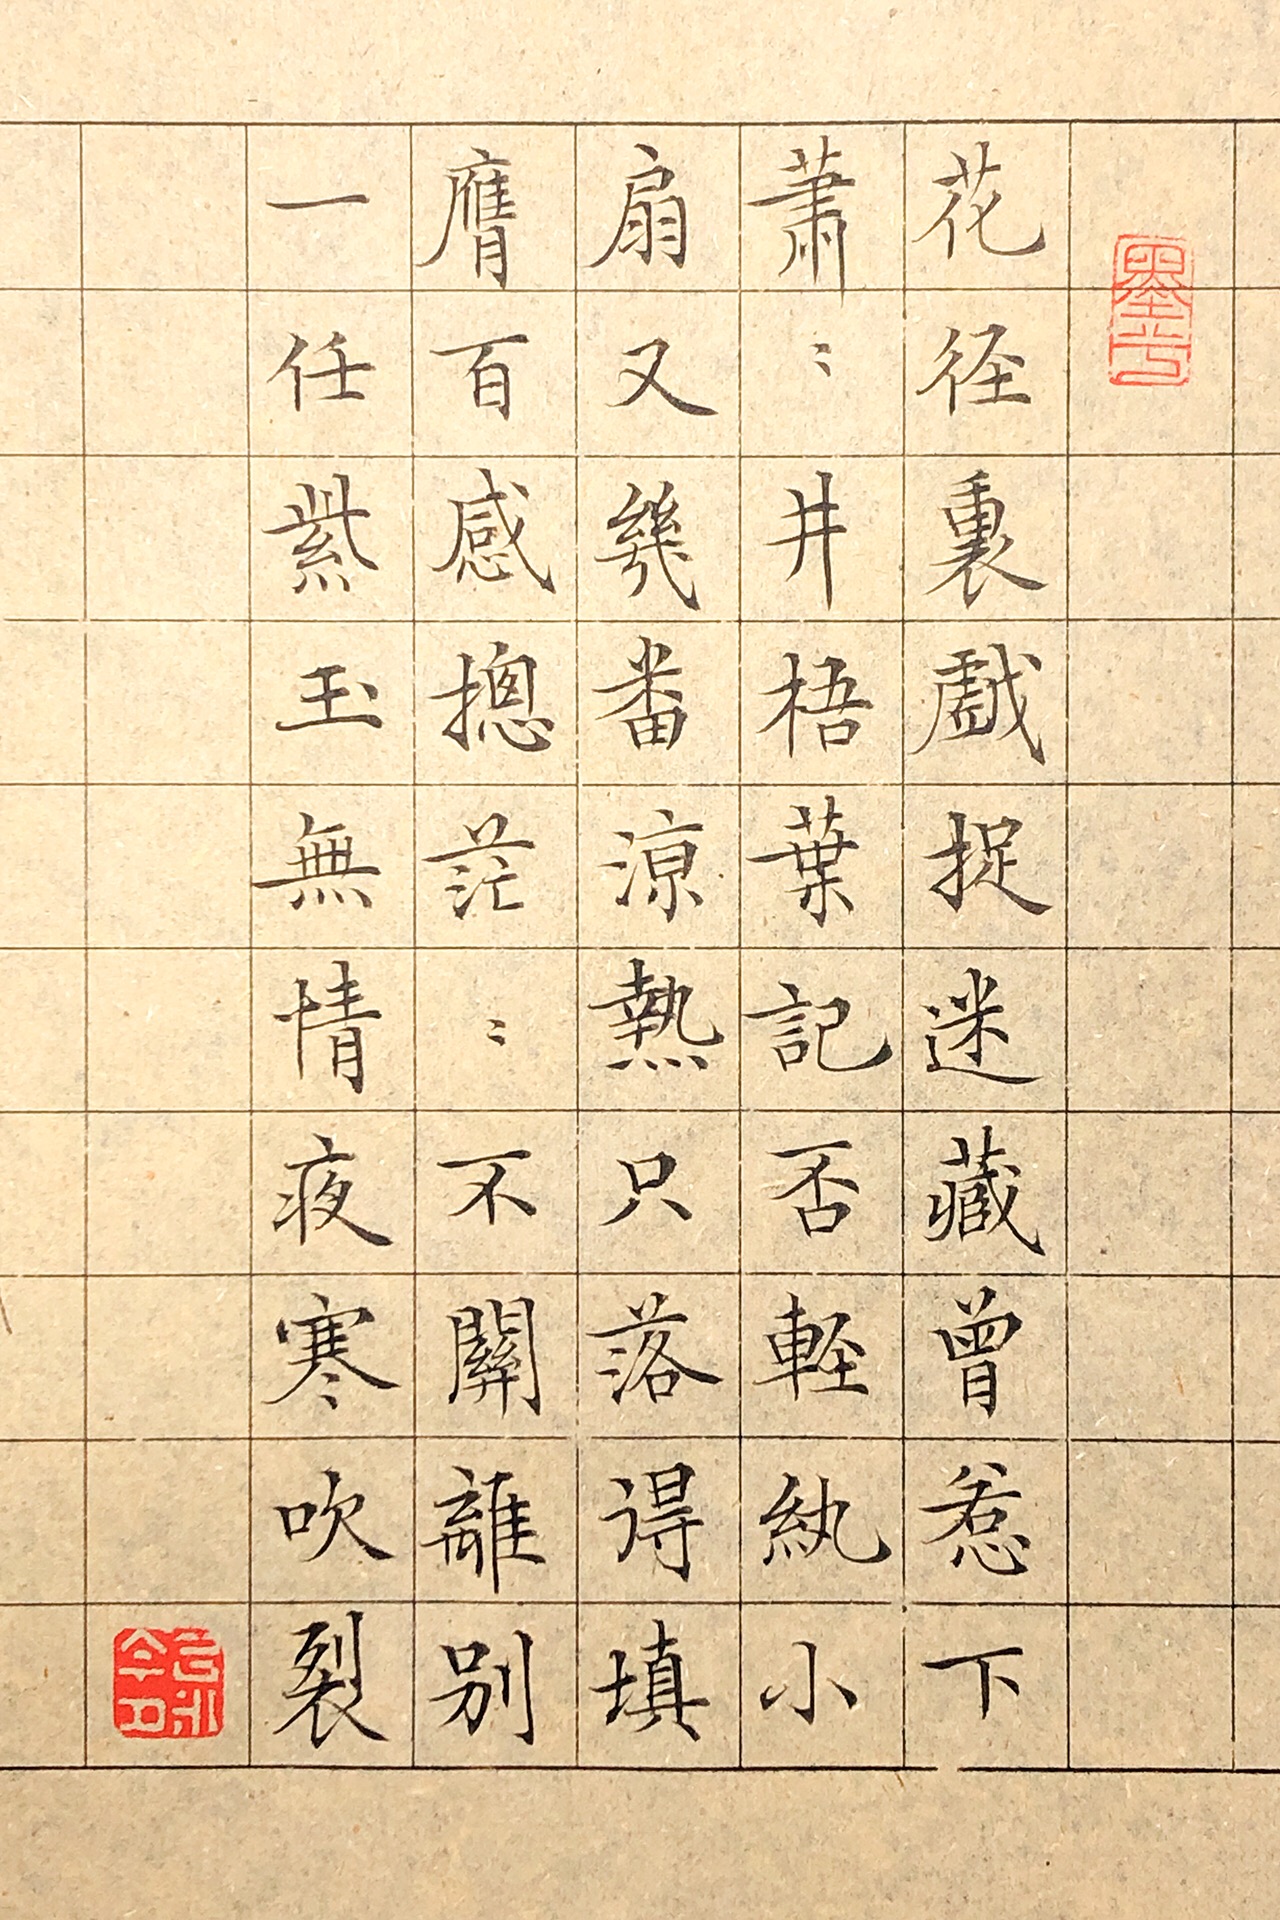 花径裏戲捉迷藏曾惹下
蕭〻井梧葉記否輕紈小
扇又幾番涼熱只落得填
膺百感摠茫〻不關離別
一任紫玉無情夜寒吹裂